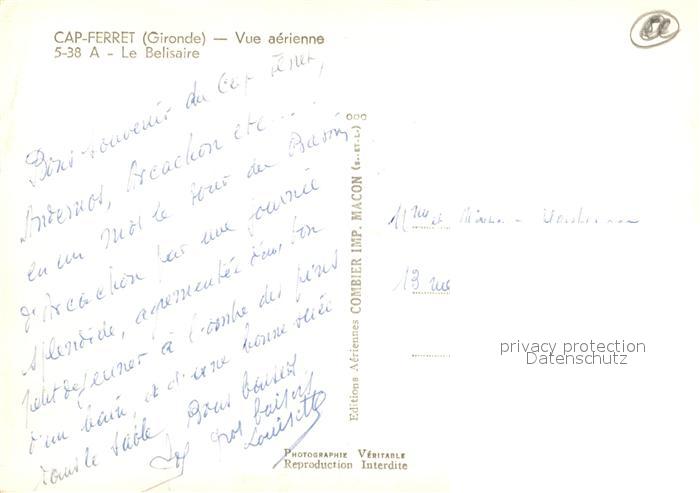 CAP-FERRET (Gironde) — Vue aérienne
5-38 A - Le Belisaire
Bons souvenirs du Cap Ferret,
Andernos, Arcachon etc...
en un mot le tour du Bassin
d'Arcachon par une journée
splendide, agrementée d'un bon
petit dejeuner à l'ombre des pins
d'un bain, et d'une bonne
sur le sable. Bons baisers
gros baisers
Louisette
Editions Aériennes COMBIER IMP. MACON (S.-ET-L.)
Mme et
13 rue
privacy protection
Datenschutz
PHOTOGRAPHIE VÉRITABLE
Reproduction Interdite